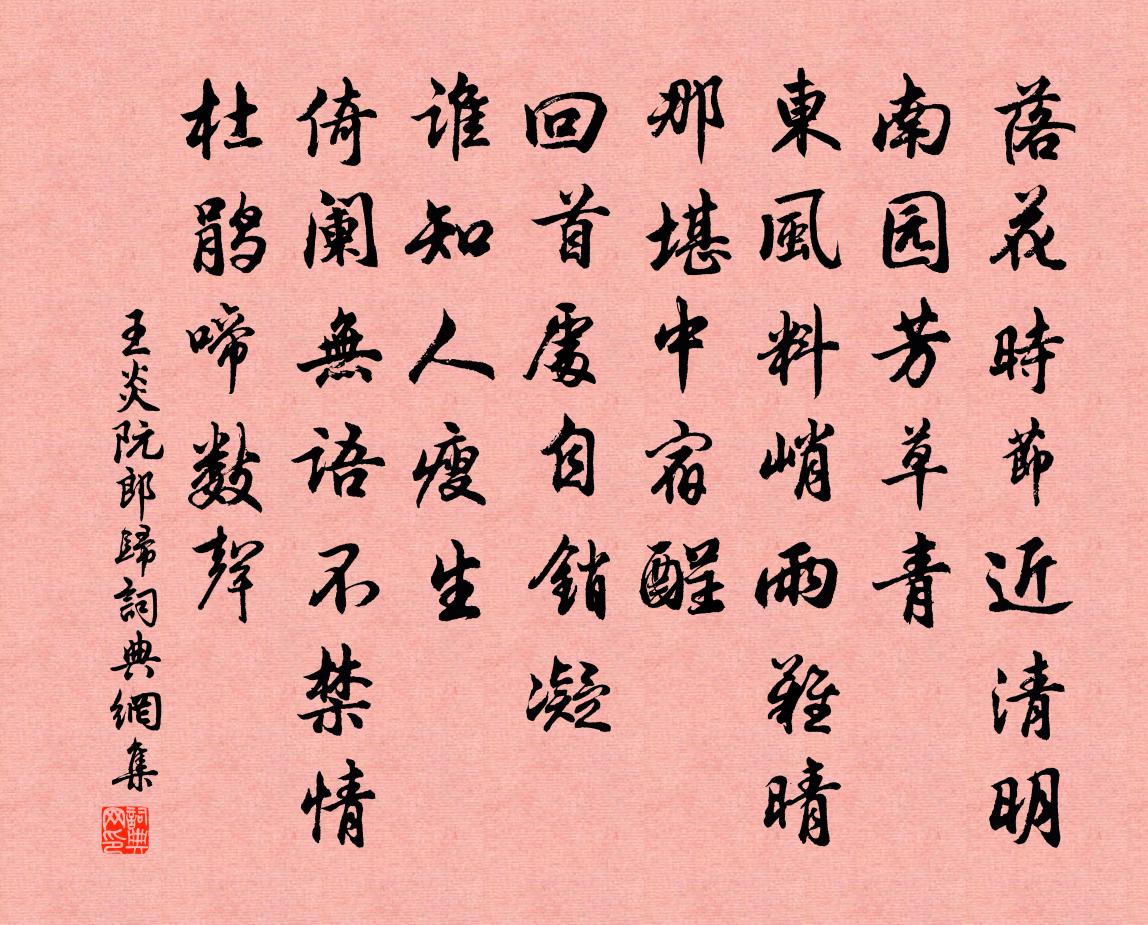 落花時節近清明
南园芳草青
東風料峭雨難晴
那堪中宿酲
回首處自銷凝
谁知人瘦生
倚阑無語不禁情
杜鹃啼數聲
王炎阮郎歸詞典網集
詞典网印